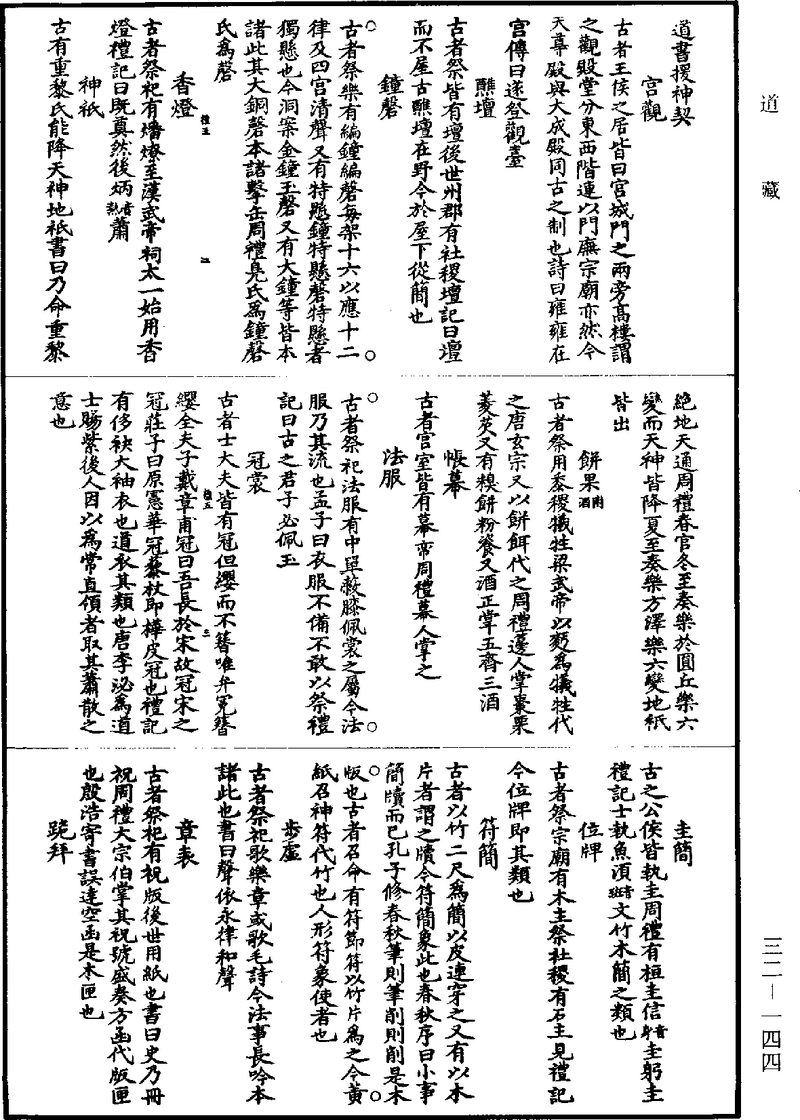 道藏
三二—一四四
道書援神契
宮觀
古者王侯之居皆曰宮城門之兩旁高樓謂
之觀殿堂分東西階連以門廡宗廟亦然今
天尊殿與大成殿同古之制也詩曰雍雍在
宮傳曰遂登觀臺
醮壇
古者祭皆有壇後世州郡有社稷壇記曰壇
而不屋古醮壇在野今於屋下從簡也
鐘磬
古者祭樂有編鐘編磬每架十六以應十二
律及四宮清聲又有特懸鐘特懸磬特懸者
獨懸也今洞案金鐘玉磬又有大鐘等皆本
諸此其大銅磬本諸擊缶周禮鳧氏爲鐘磬
氏爲磬
香燈
古者祭祀有燔燎至漢武帝祠太一始用香
燈禮記曰既奠然後炳音熱蕭
神祇
古有重黎氏能降天神地祇書曰乃命重黎
絶地天通周禮春官冬至奏樂於圓丘樂六
變而天神皆降夏至奏樂方澤樂六變地祇
皆出
餅果附酒
古者祭用黍稷犧牲梁武帝以麪爲犧牲代
之唐玄宗又以餅餌代之周禮籩人掌棗栗
菱芡又有糗餅粉餈又酒正掌五齊三酒
帳幕
古者宮室皆有幕帟周禮幕人掌之
法服
古者祭祀法服有中單蔽膝佩裳之屬今法
服乃其流也孟子曰衣服不備不敢以祭禮
記曰古之君子必佩玉
冠裳
古者士大夫皆有冠但纓而不簪唯弁冕簪
纓全夫子戴章甫冠曰吾長於宋故冠宋之
冠莊子曰原憲華冠藜杖即樺皮冠也禮記
有侈袂大袖衣也道衣其類也唐李泌爲道
士賜紫後人因以爲常直領者取其蕭散之
意也
圭簡
古之公侯皆執圭周禮有桓圭信音身圭躬圭
禮記士執魚須音班文竹木簡之類也
位牌
古者祭宗廟有木主祭社稷有石主見禮記
今位牌即其類也
符簡
古者以竹二尺爲簡以皮連穿之又有以木
片者謂之牘今符簡象此也春秋序曰小事
簡牘而已孔子修春秋筆則筆削則削是木
版也古者召命有符節符以竹片爲之今黄
紙召神符代竹也人形符象使者也
步虛
古者祭祀歌樂章或歌毛詩今法事長吟本
諸此也書曰聲依永律和聲
章表
古者祭祀有祝版後世用紙也書曰史乃冊
祝周禮大宗伯掌其祝號盛奏方函代版匣
也殷浩寄書誤達空函是木匣也
跪拜